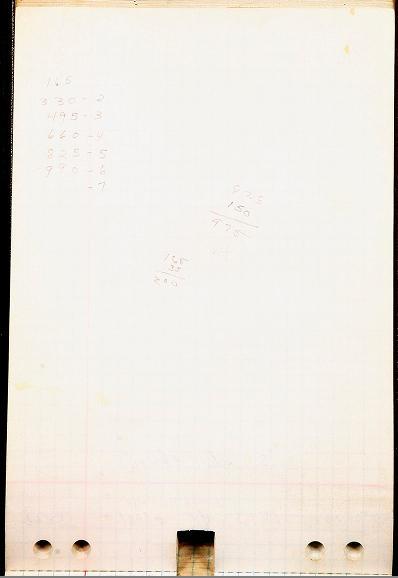 165
330 - 2
495 - 3
660 - 4
825 - 5
990 - 6
- 7
825
150
975
165
35
200